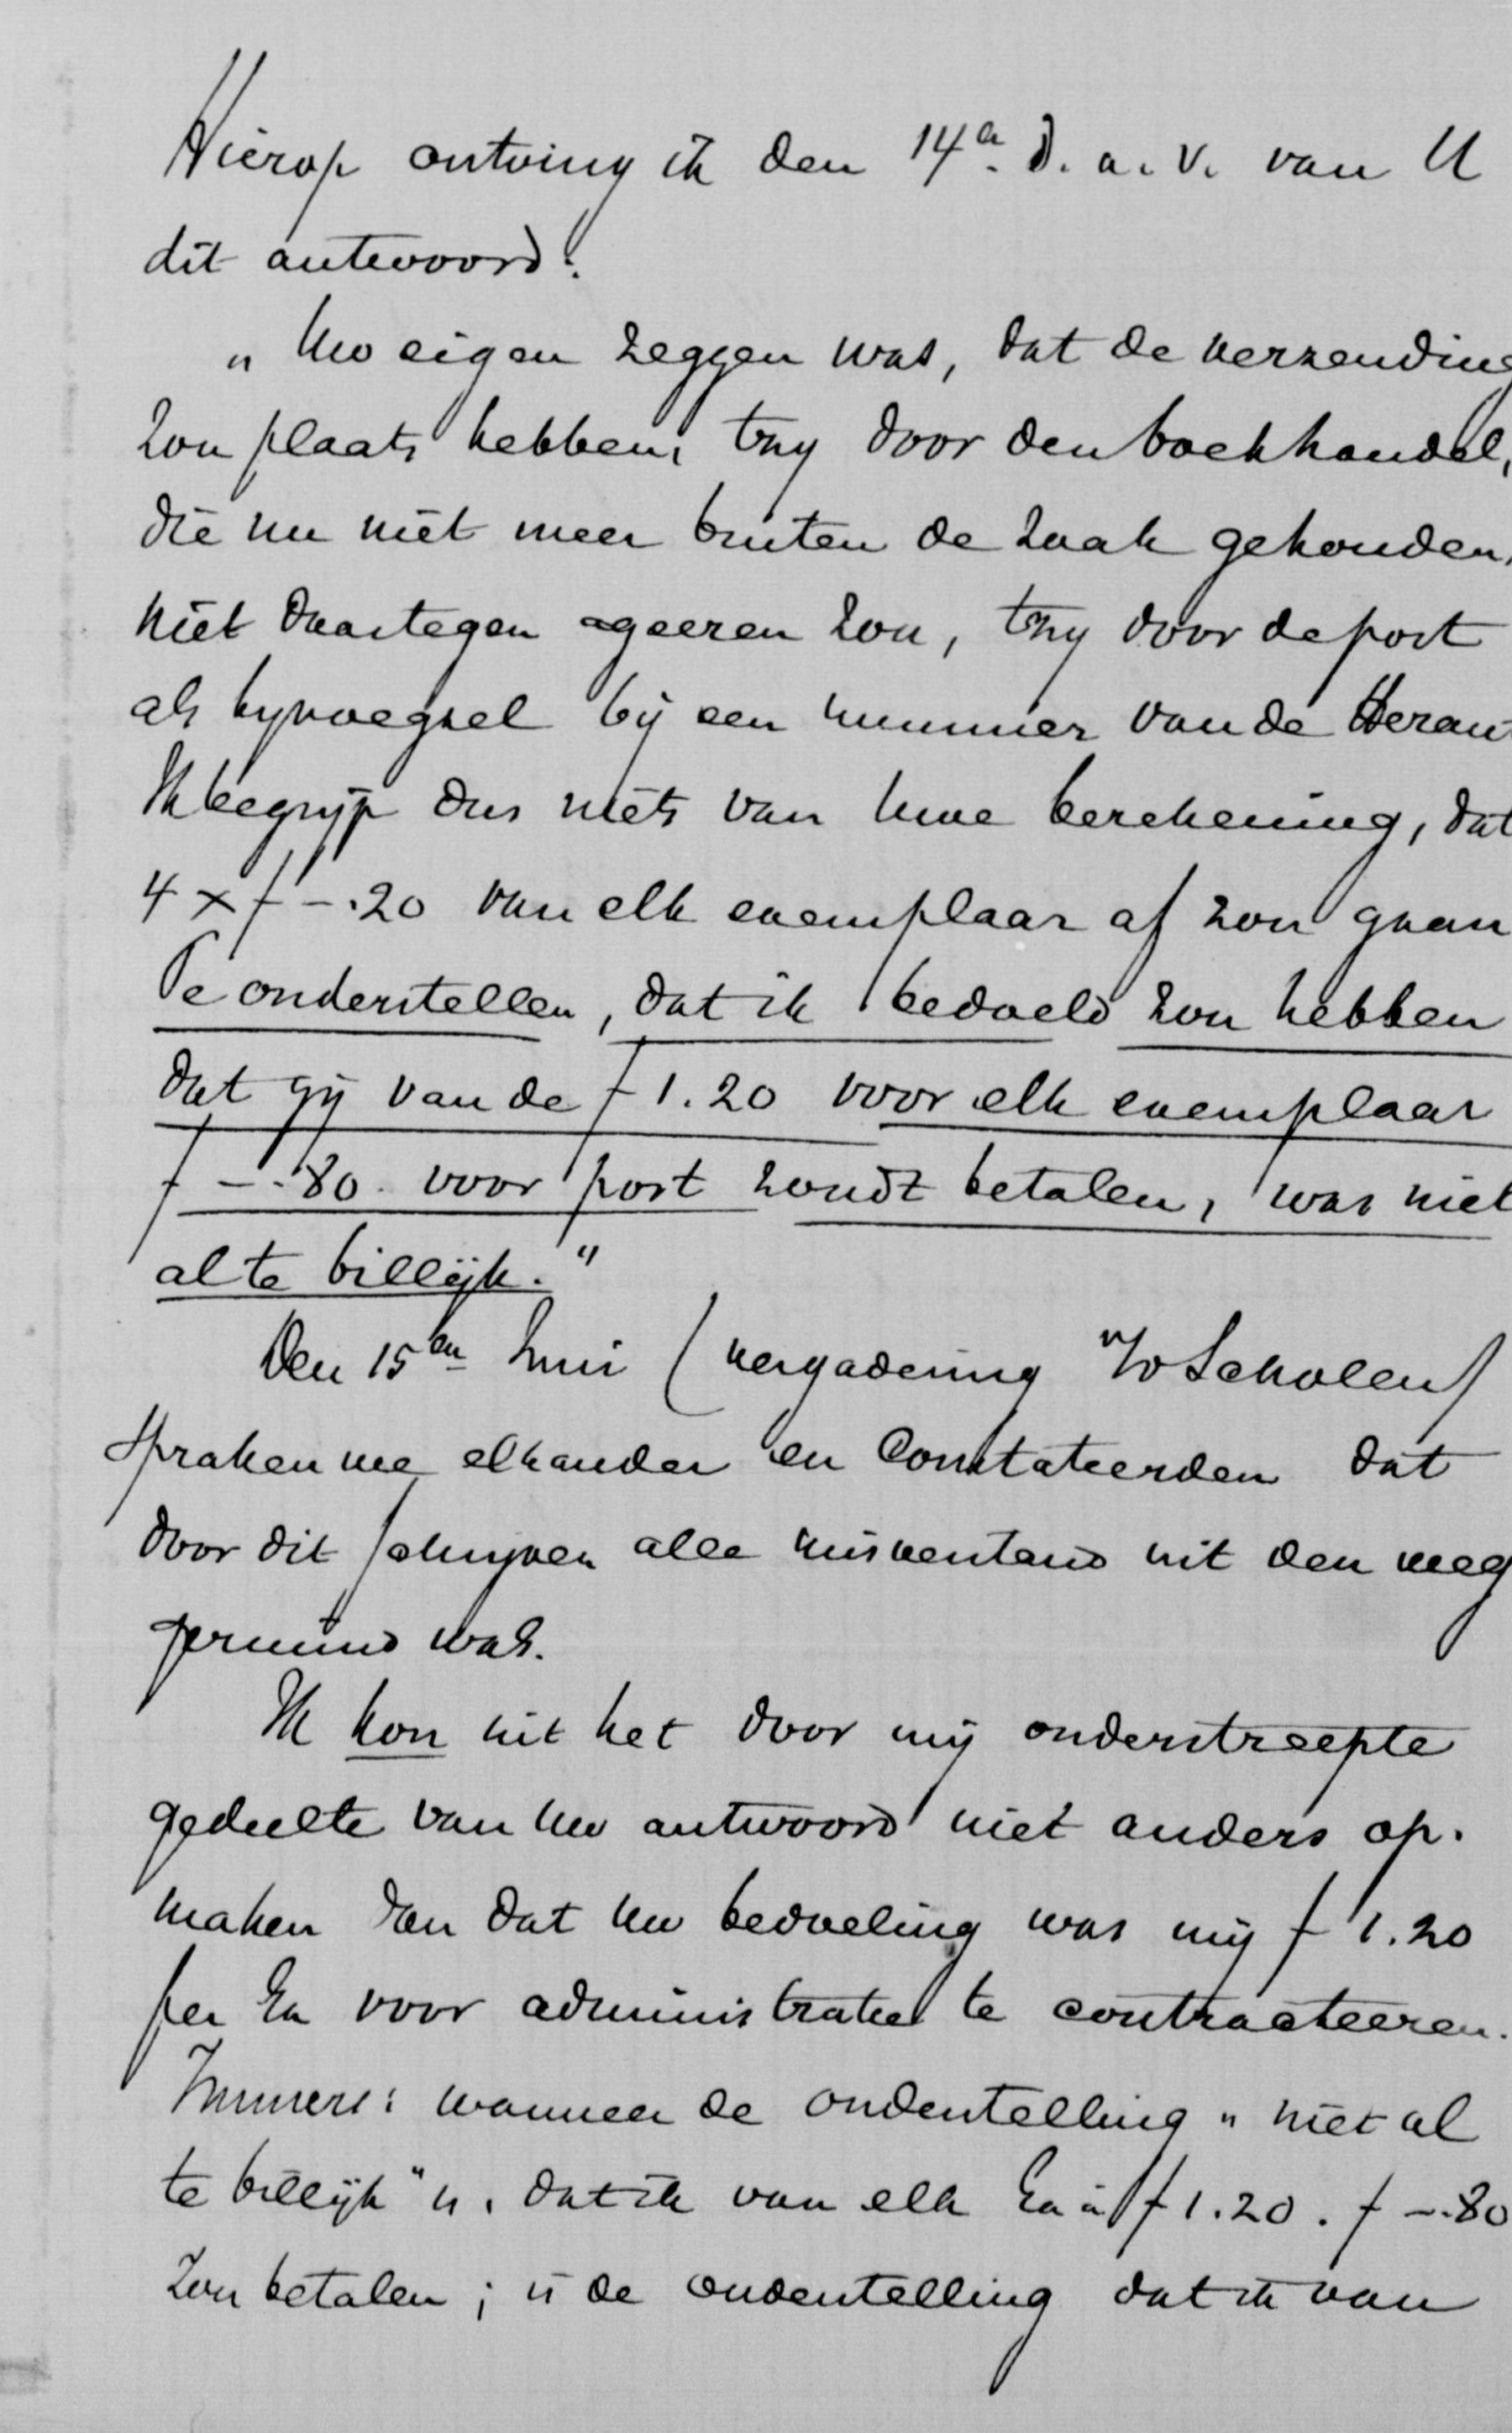 Hierop ontving ik den 14en d. a. v. van U
dit antwoord:
„Uw eigen zeggen was, dat de verzending
zou plaats hebben, tzy door den boekhandel,
die nu niet meer buiten de zaak gehouden,
niet daartegen ageeren zou, tzy door de post
als byvoegsel bij een nummer van de Heraut
Ik begrijp dus niets van Uwe berekening, dat
4 x f -.20 van elk exemplaar af zou gaan
Te onderstellen, dat ik bedoeld zou hebben
dat gij van de f 1.20 voor elk exemplaar
f -.80 voor port zoudt betalen, was niet
al te billijk."
Den 15en Juni (vergadering v/d Scholen)
spraken we elkander en constateerden dat
door dit schrijven alle misverstand uit den weg
geruimd was.
Ik kon uit het door mij onderstreepte
gedeelte van Uw antwoord niet anders op-
maken dan dat Uw bedoeling was mij f 1.20
per Ex voor administratie te contracteeren.
Immers: wanneer de onderstelling „niet al
te billijk" is, dat ik van elk Ex à f 1.20. f -.80
zou betalen; is de onderstelling dat ik van